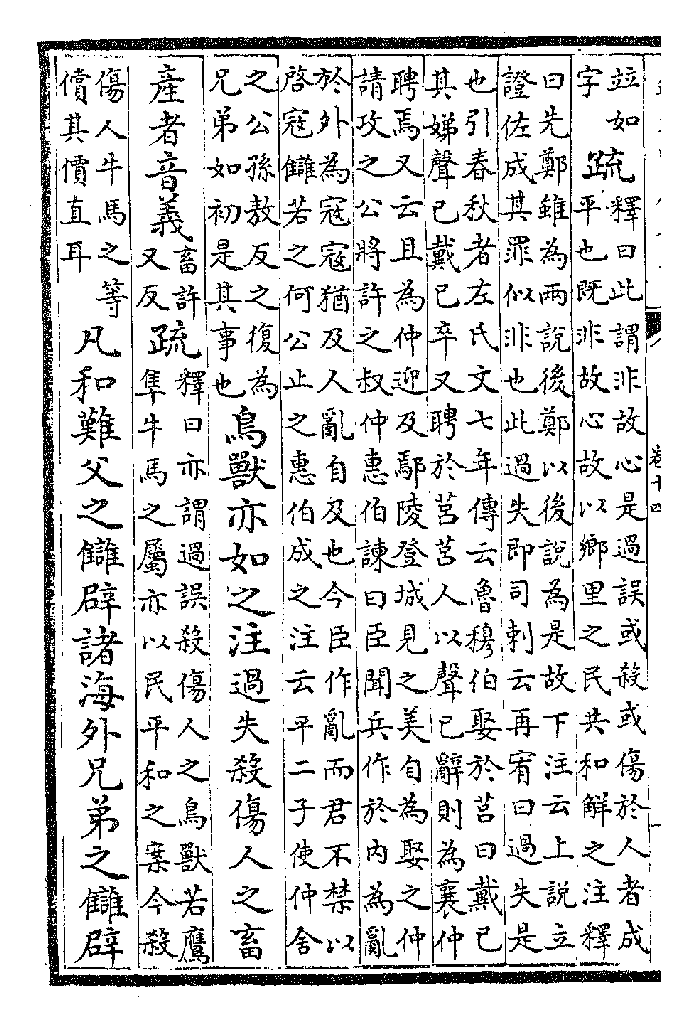 竝如
字
疏
釋曰此謂非故心是過誤或殺或傷於人者成
平也既非故心故以鄉里之民共和解之注釋
曰先鄭雖為兩說後鄭以後說為是故下注云上說立
證佐成其罪似非也此過失即司刺云再宥曰過失是
也引春秋者左氏文七年傳云魯穆伯娶於莒曰戴己
其娣聲己戴己卒又聘於莒莒人以聲己辭則為襄仲
聘焉又云且為仲迎及鄢陵登城見之美自為娶之仲
請攻之公將許之叔仲惠伯諫曰臣聞兵作於內為亂
於外為寇寇猶及人亂自及也今臣作亂而君不禁以
啓寇讎若之何公止之惠伯成之注云平二子使仲舍
之公孫敖反之復為
兄弟如初是其事也
鳥獸亦如之注過失殺傷人之畜
產者音義
畜許
又反
疏
釋曰亦謂過誤殺傷人之鳥獸若鷹
隼牛馬之屬亦以民平和之案今殺
傷人牛馬之等
償其價直耳
凡和難父之讎辟諸海外兄弟之讎辟
卷十四